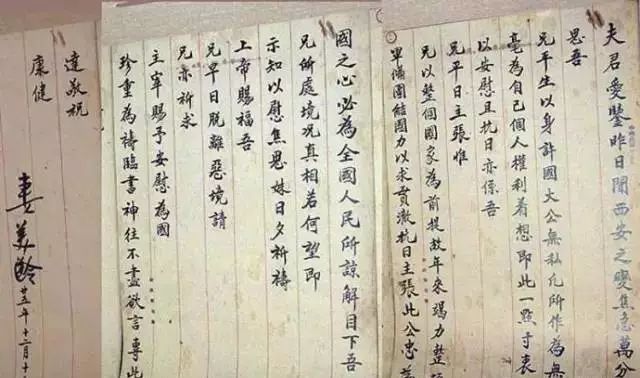 夫君愛鑒昨日聞西安之變焦急萬分
思吾
兄平生以身許國大公無私凡所作為無
毫為自己個人權利着想即此一點寸衷
以安慰且抗日亦係吾
兄平日主張惟
兄以整個國家為前提故年來竭力整
軍備團結國力以求貫澈抗日主張此公忠
國之心必為全國人民所諒解目下吾
兄所處境況真相若何望即
示知以慰焦思妹日夕祈禱
上帝賜福吾
兄早日脫離惡境請
兄亦祈求
主宰賜予安慰為國
珍重為禱臨書神往不盡欲言專此
達敬祝
康健
妻美齡
廿五年十二月十